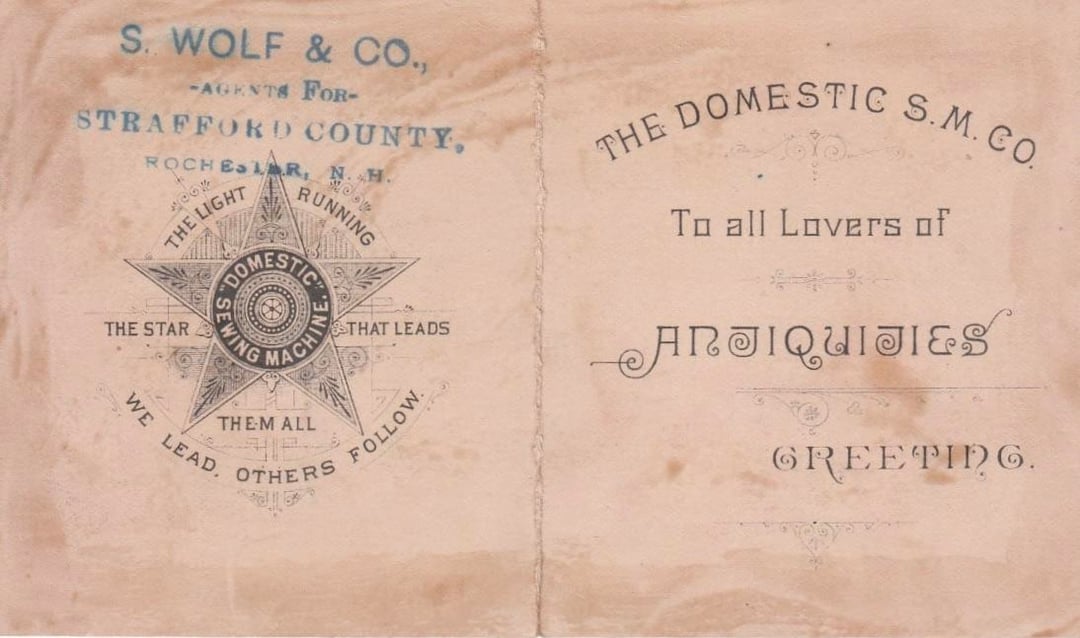 S. WOLF & CO.,
-AGENTS FOR-
STRAFFORD COUNTY,
ROCHESTER, N. H.
THE LIGHT RUNNING
"DOMESTIC"
SEWING MACHINE.
THE STAR THAT LEADS
THEM ALL
WE LEAD. OTHERS FOLLOW.
THE DOMESTIC S. M. CO.
To all Lovers of
ANTIQUITIES
GREETING.